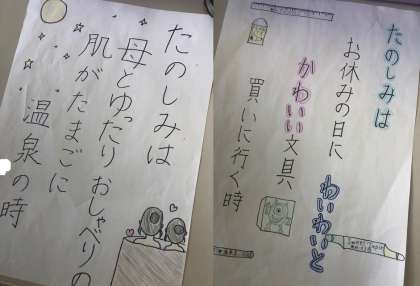 たのしみは
母とゆったり おしゃべりの
肌がたまごに
温泉の時
たのしみは
お休みの日に わいわいと
かわいい文具
買いに行く時